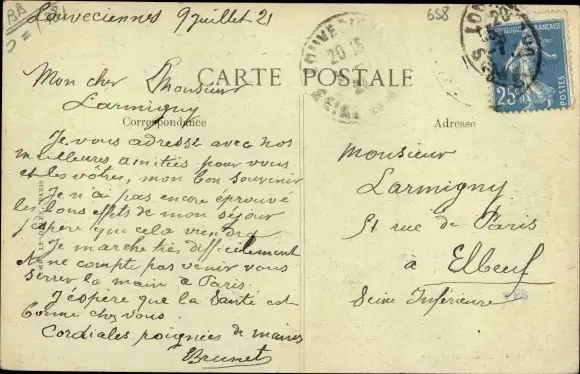 Louveciennes 9 juillet 21
658
Mon cher Monsieur
Larmigny
CARTE POSTALE
Correspondance
Adresse
Je vous adresse avec nos
meilleures amitiés pour vous
et les vôtres, mon bon souvenir
Je n'ai pas encore éprouvé
les bons effets de mon séjour
j'espère que cela viendra
Je marche très difficilement
et ne compte pas venir vous
serrer la main à Paris.
J'éspère que la Santé est
bonne chez vous.
Cordiales poignées de mains
Brunet
Monsieur
Larmigny
51 rue de Paris
à Elbeuf
Seine Inférieure
25c
POSTES